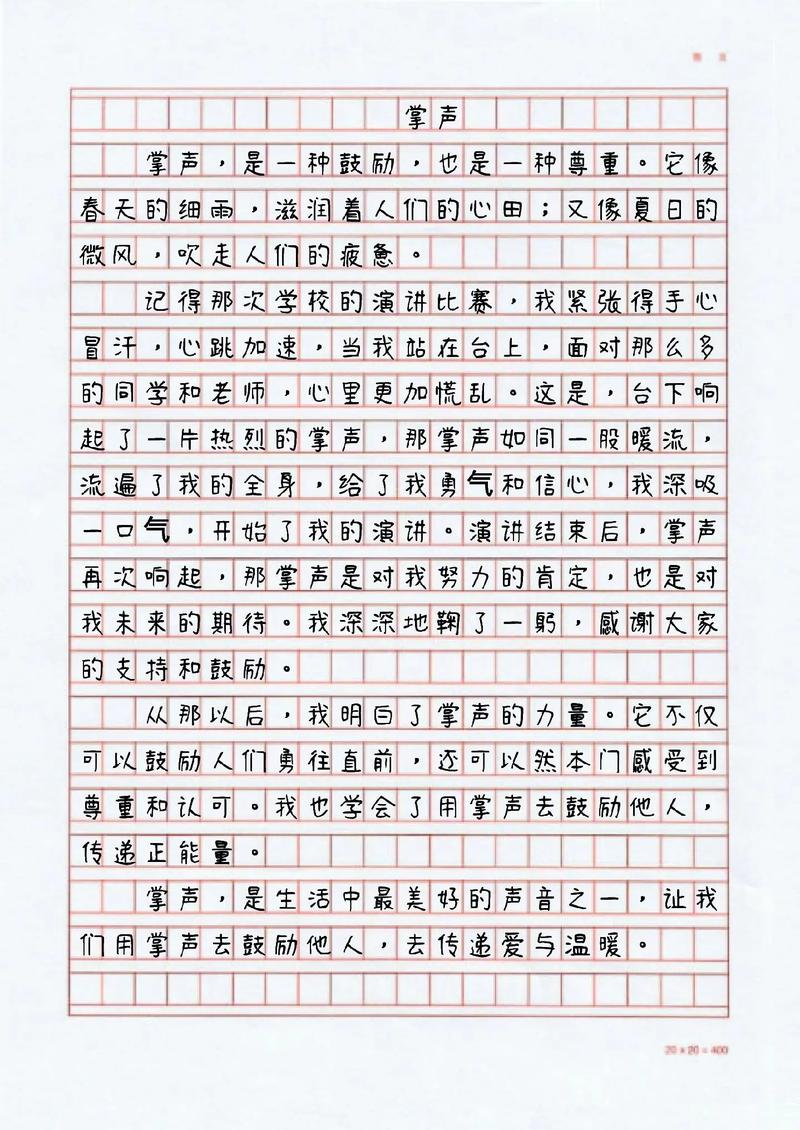 掌声
掌声，是一种鼓励，也是一种尊重。它像
春天的细雨，滋润着人们的心田；又像夏日的
微风，吹走人们的疲惫。
记得那次学校的演讲比赛，我紧张得手心
冒汗，心跳加速，当我站在台上，面对那么多
的同学和老师，心里更加慌乱。这是，台下响
起了一片热烈的掌声，那掌声如同一股暖流，
流遍了我的全身，给了我勇气和信心，我深吸
一口气，开始了我的演讲。演讲结束后，掌声
再次响起，那掌声是对我努力的肯定，也是对
我未来的期待。我深深地鞠了一躬，感谢大家
的支持和鼓励。
从那以后，我明白了掌声的力量。它不仅
可以鼓励人们勇往直前，还可以然本门感受到
尊重和认可。我也学会了用掌声去鼓励他人，
传递正能量。
掌声，是生活中最美好的声音之一，让我
们用掌声去鼓励他人，去传递爱与温暖。
20×20=400